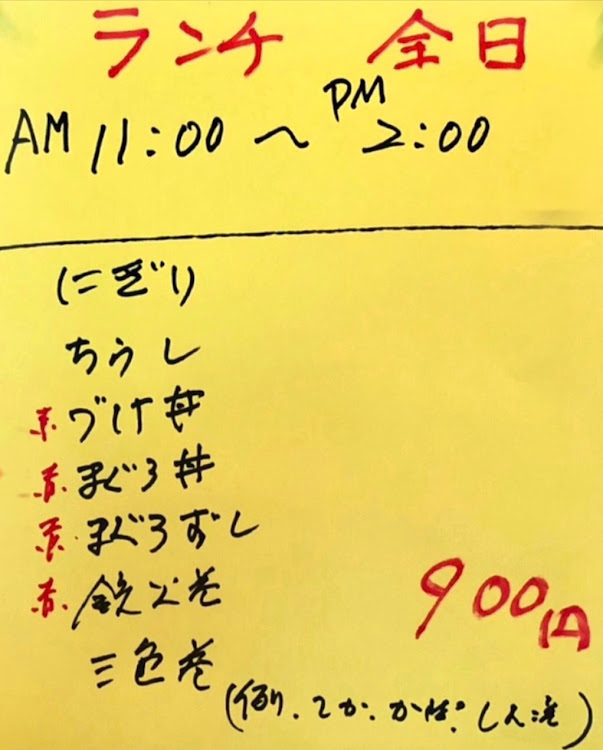 ランチ 全日
AM 11:00 〜 PM 2:00
にぎり
ちらし
赤. づけ丼
赤. まぐろ丼
赤. まぐろずし
赤. 鉄火巻
三色巻
900円
(例. てか. かぱ. しん巻)